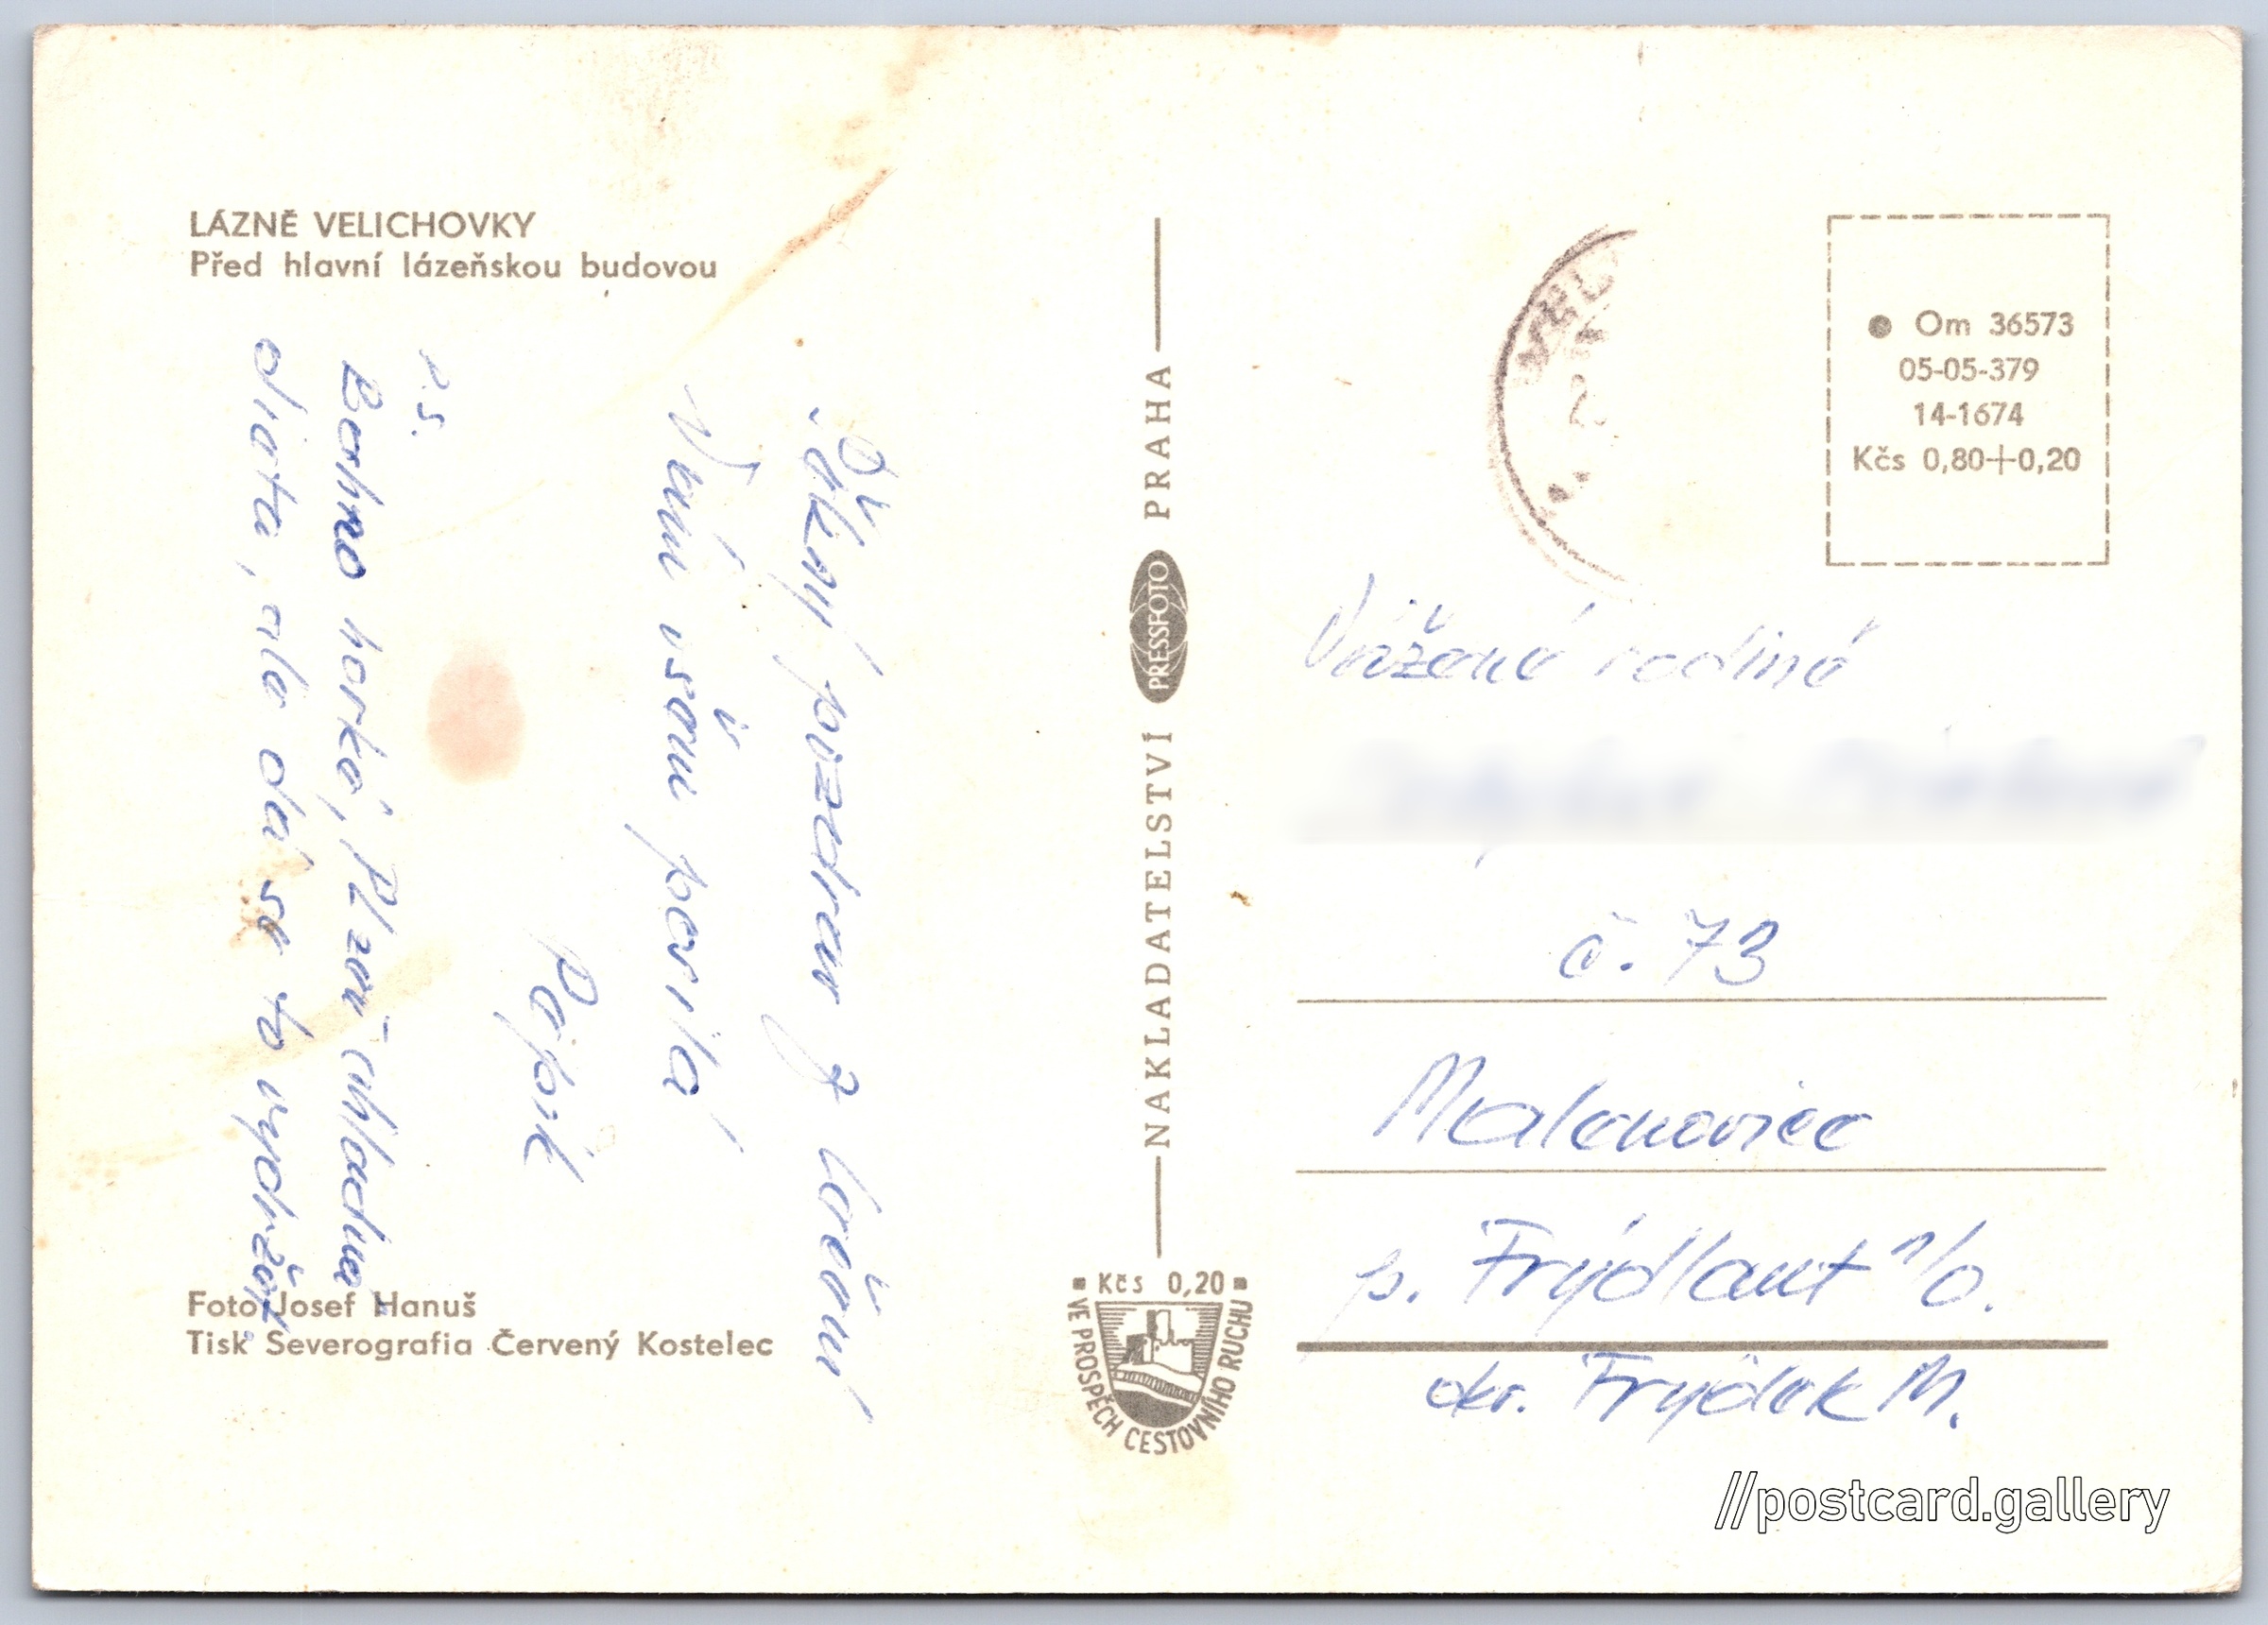 LÁZNĚ VELICHOVKY
Před hlavní lázeňskou budovou
pozdrav z léčení
Vám všem posílá
P.S.
horké, Plzeň chladná
dieta, ale dá se to vydržet.
Foto Josef Hanuš
Tisk Severografia Červený Kostelec
NAKLADATELSTVÍ PRESSFOTO PRAHA
Kčs 0,20
VE PROSPĚCH CESTOVNÍHO RUCHU
Om 36573
05-05-379
14-1674
Kčs 0,80+0,20
Vážená rodina
č. 73
Malenovice
p. Frýdlant n/O.
okr. Frýdek M.
//postcard.gallery